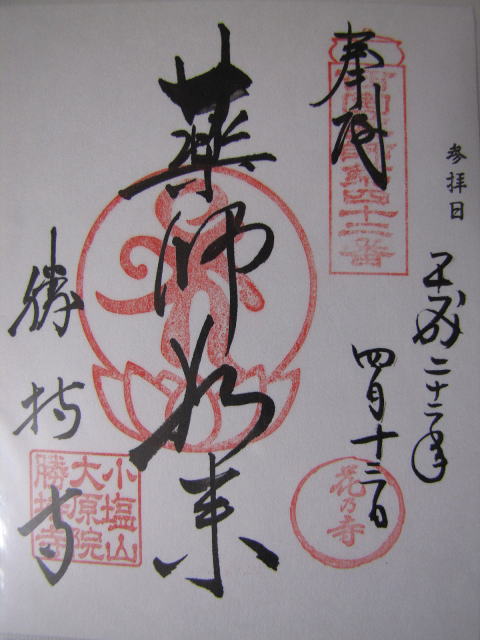 参拝日
平成二十二年
四月十三日
奉拝
西国薬師第四十二番
薬師如来
勝持寺
花乃寺
小塩山
大原院
勝持寺